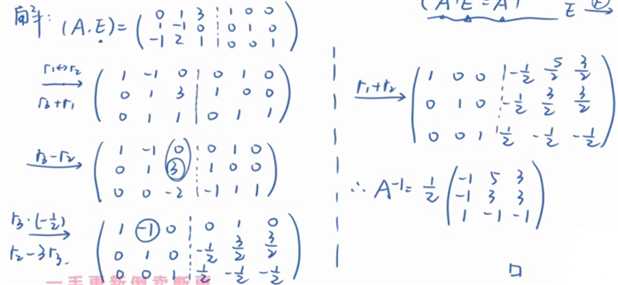 解: (A.E) = ( 0 1 3 ¦ 1 0 0
1 -1 0 ¦ 0 1 0
-1 2 1 ¦ 0 0 1 )
r₁↔r₂
r₃+r₁
( 1 -1 0 | 0 1 0
0 1 3 | 1 0 0
0 1 1 | 0 1 1 )
r₃-r₂
( 1 -1 0 ¦ 0 1 0
0 1 3 ¦ 1 0 0
0 0 -2 ¦ -1 1 1 )
r₃·(-1/2)
r₂-3r₃.
( 1 -1 0 ¦ 0 1 0
0 1 0 ¦ -1/2 3/2 3/2
0 0 1 ¦ 1/2 -1/2 -1/2 )
E
r₁+r₂
( 1 0 0 ¦ -1/2 5/2 3/2
0 1 0 ¦ -1/2 3/2 3/2
0 0 1 ¦ 1/2 -1/2 -1/2 )
∴ A⁻¹ = 1/2 ( -1 5 3
-1 3 3
1 -1 -1 )
□